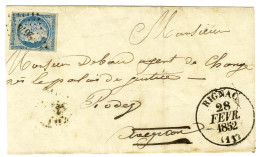 Monsieur
Monsieur Debard agent de Change
près le palais de justice
Rodez
Aveyron
RIGNAC
28
FEVR.
1852
(11)